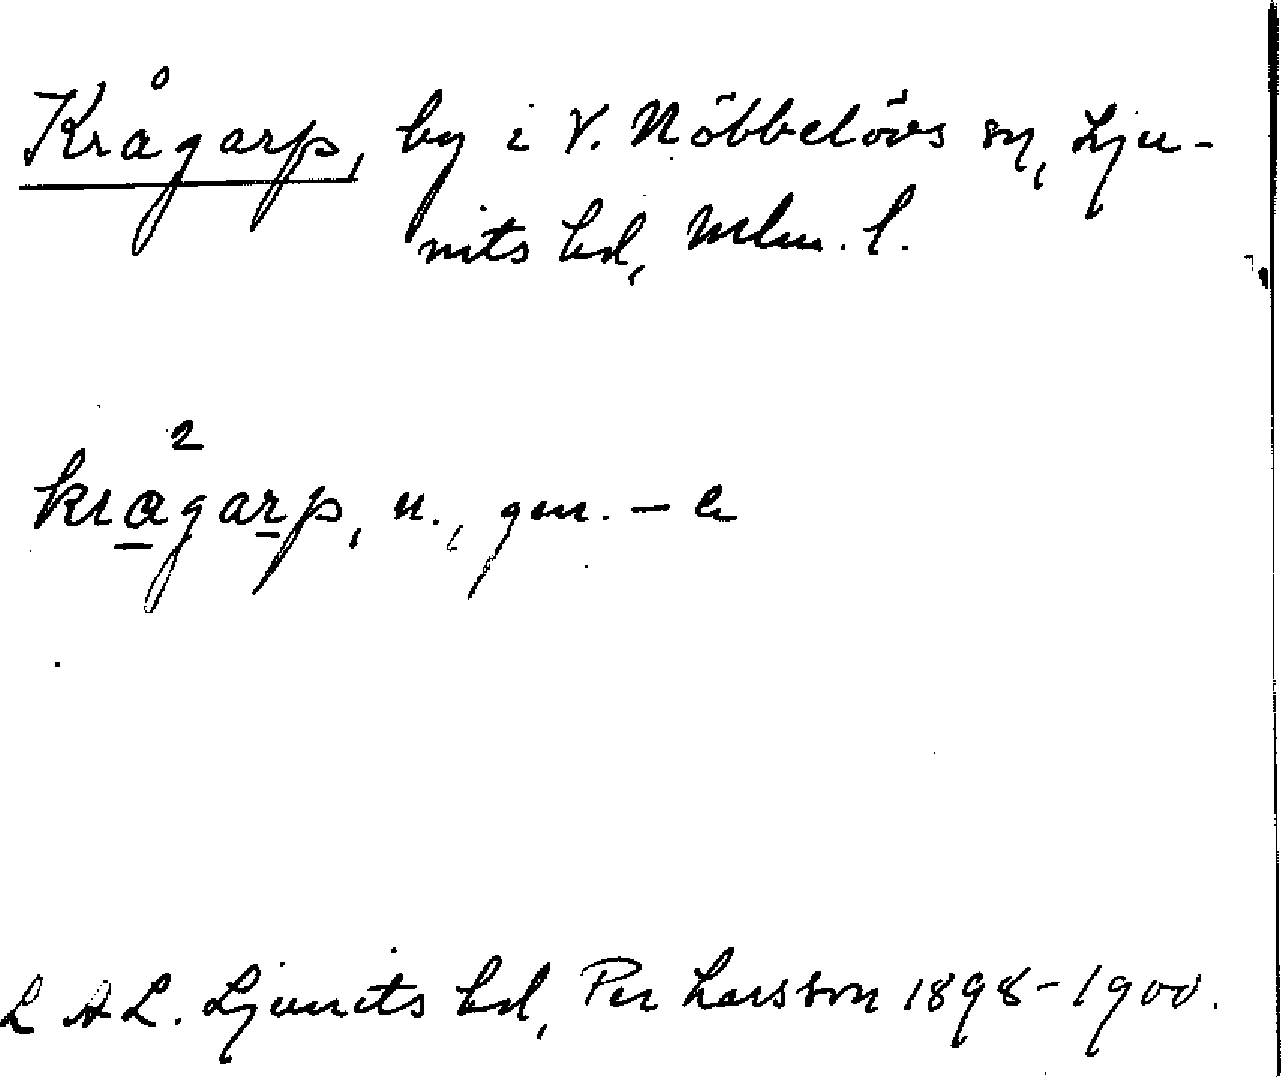 Krågarp, by i V. Nöbbelövs sn, Lju-
nits hd, Mlm. l.
2
krågarp, n., gen. – a
L A L. Ljunits hd, Per Larsson 1898–1900.